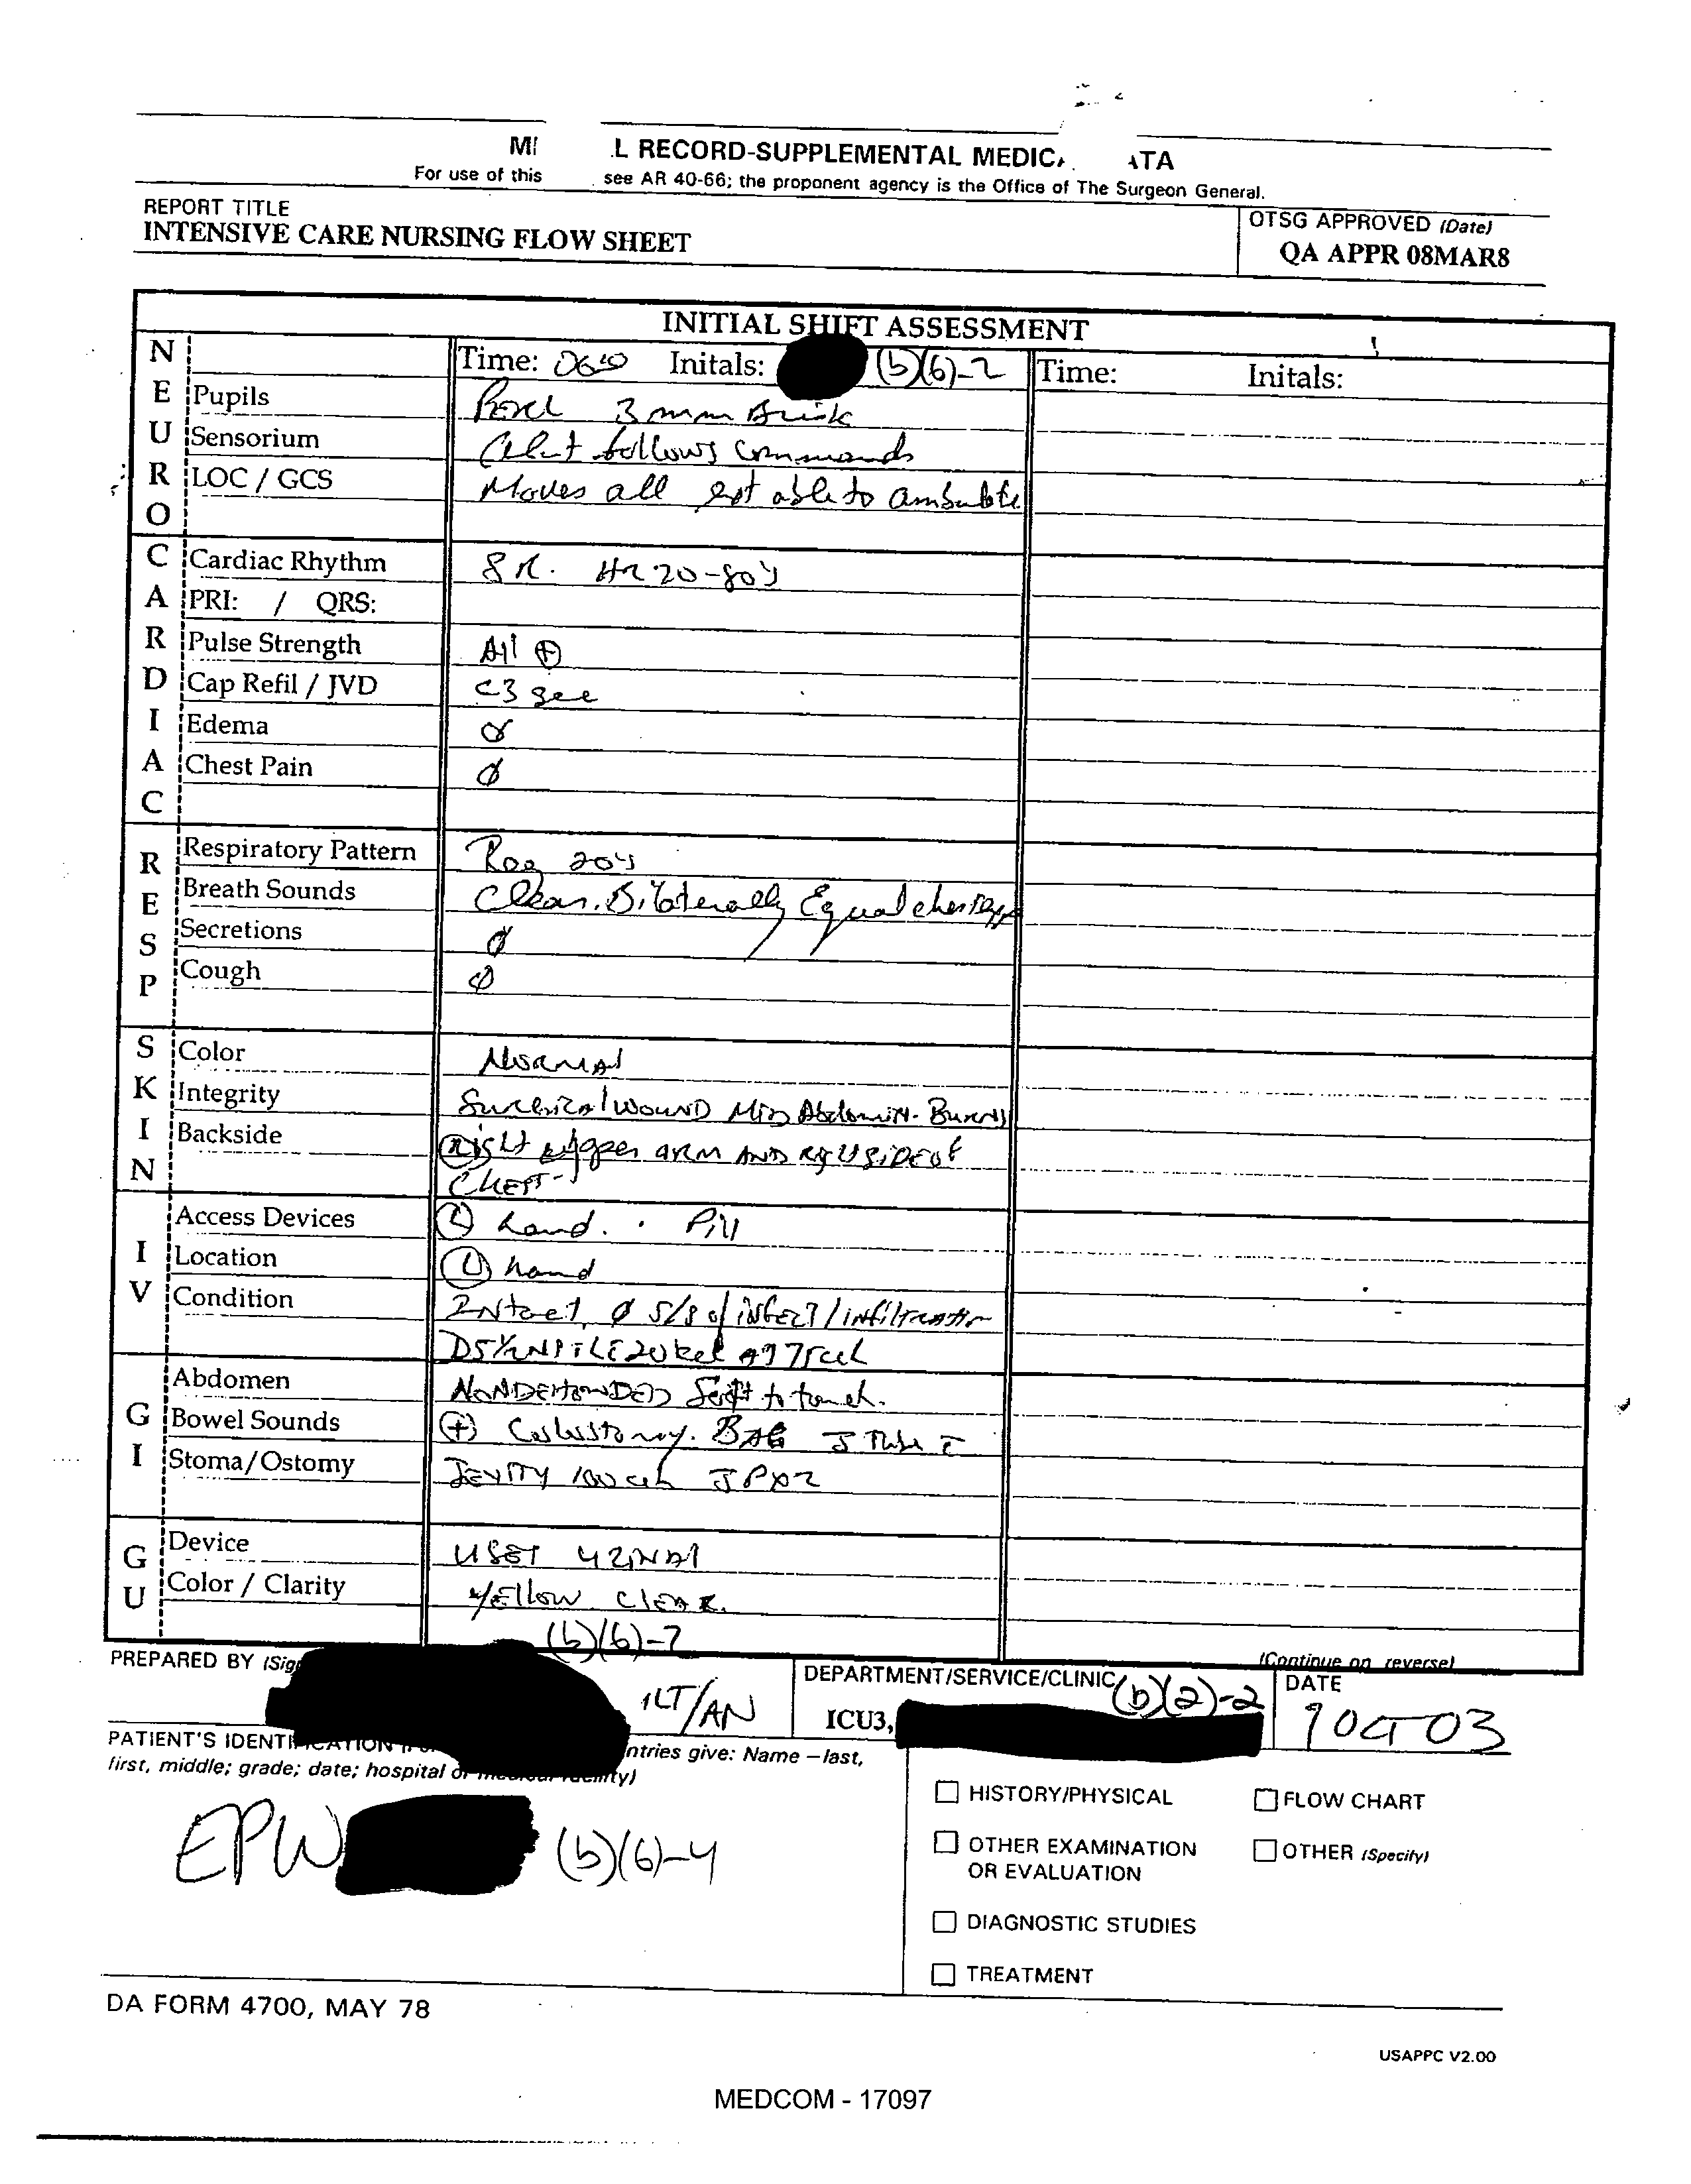 L RECORD-SUPPLEMENTAL MEDIC ATA
For use of this see AR 40-66; the proponent agency is the Office of The Surgeon General.
REPORT TITLE
INTENSIVE CARE NURSING FLOW SHEET
OTSG APPROVED (Date)
QA APPR 08MAR8
INITIAL SHIFT ASSESSMENT
NEURO
Time: Initals: (b)(6)-2 Time: Initals:
Pupils 3mm Brisk
Sensorium Alert follows commands
LOC / GCS Moves all ext able to ambulate
CARDIAC
Cardiac Rhythm SR. HR
PRI: / QRS:
Pulse Strength All ⊕
Cap Refil / JVD <3 sec
Edema Ø
Chest Pain Ø
RESP
Respiratory Pattern Reg 20's
Breath Sounds Clear. Bilaterally Equal chest
Secretions Ø
Cough Ø
SKIN
Color Normal
Integrity Surgical WOUND Mid Abdomin. Burns
Backside right upper arm AND right SIDE of
CHEST
IV
Access Devices Ⓛ hand.
Location Ⓛ hand
Condition Intact, Ø s/s of infect/infiltration
GI
Abdomen NONDISTENDED Soft to touch.
Bowel Sounds ⊕ Colostomy. BAG J Tube c̄
Stoma/Ostomy JEVITY JPX2
GU
Device URINAL
Color / Clarity YELLOW CLEAR.
(b)(6)-2
(Continue on reverse)
PREPARED BY (Sig 1LT/AN
DEPARTMENT/SERVICE/CLINIC (b)(2)-2
ICU3,
DATE
9 OCT 03
PATIENT'S IDENTIFICATION ntries give: Name – last,
first, middle; grade; date; hospital or medical facility)
EPW (b)(6)-4
HISTORY/PHYSICAL
FLOW CHART
OTHER EXAMINATION
OR EVALUATION
OTHER (Specify)
DIAGNOSTIC STUDIES
TREATMENT
DA FORM 4700, MAY 78
USAPPC V2.00
MEDCOM - 17097